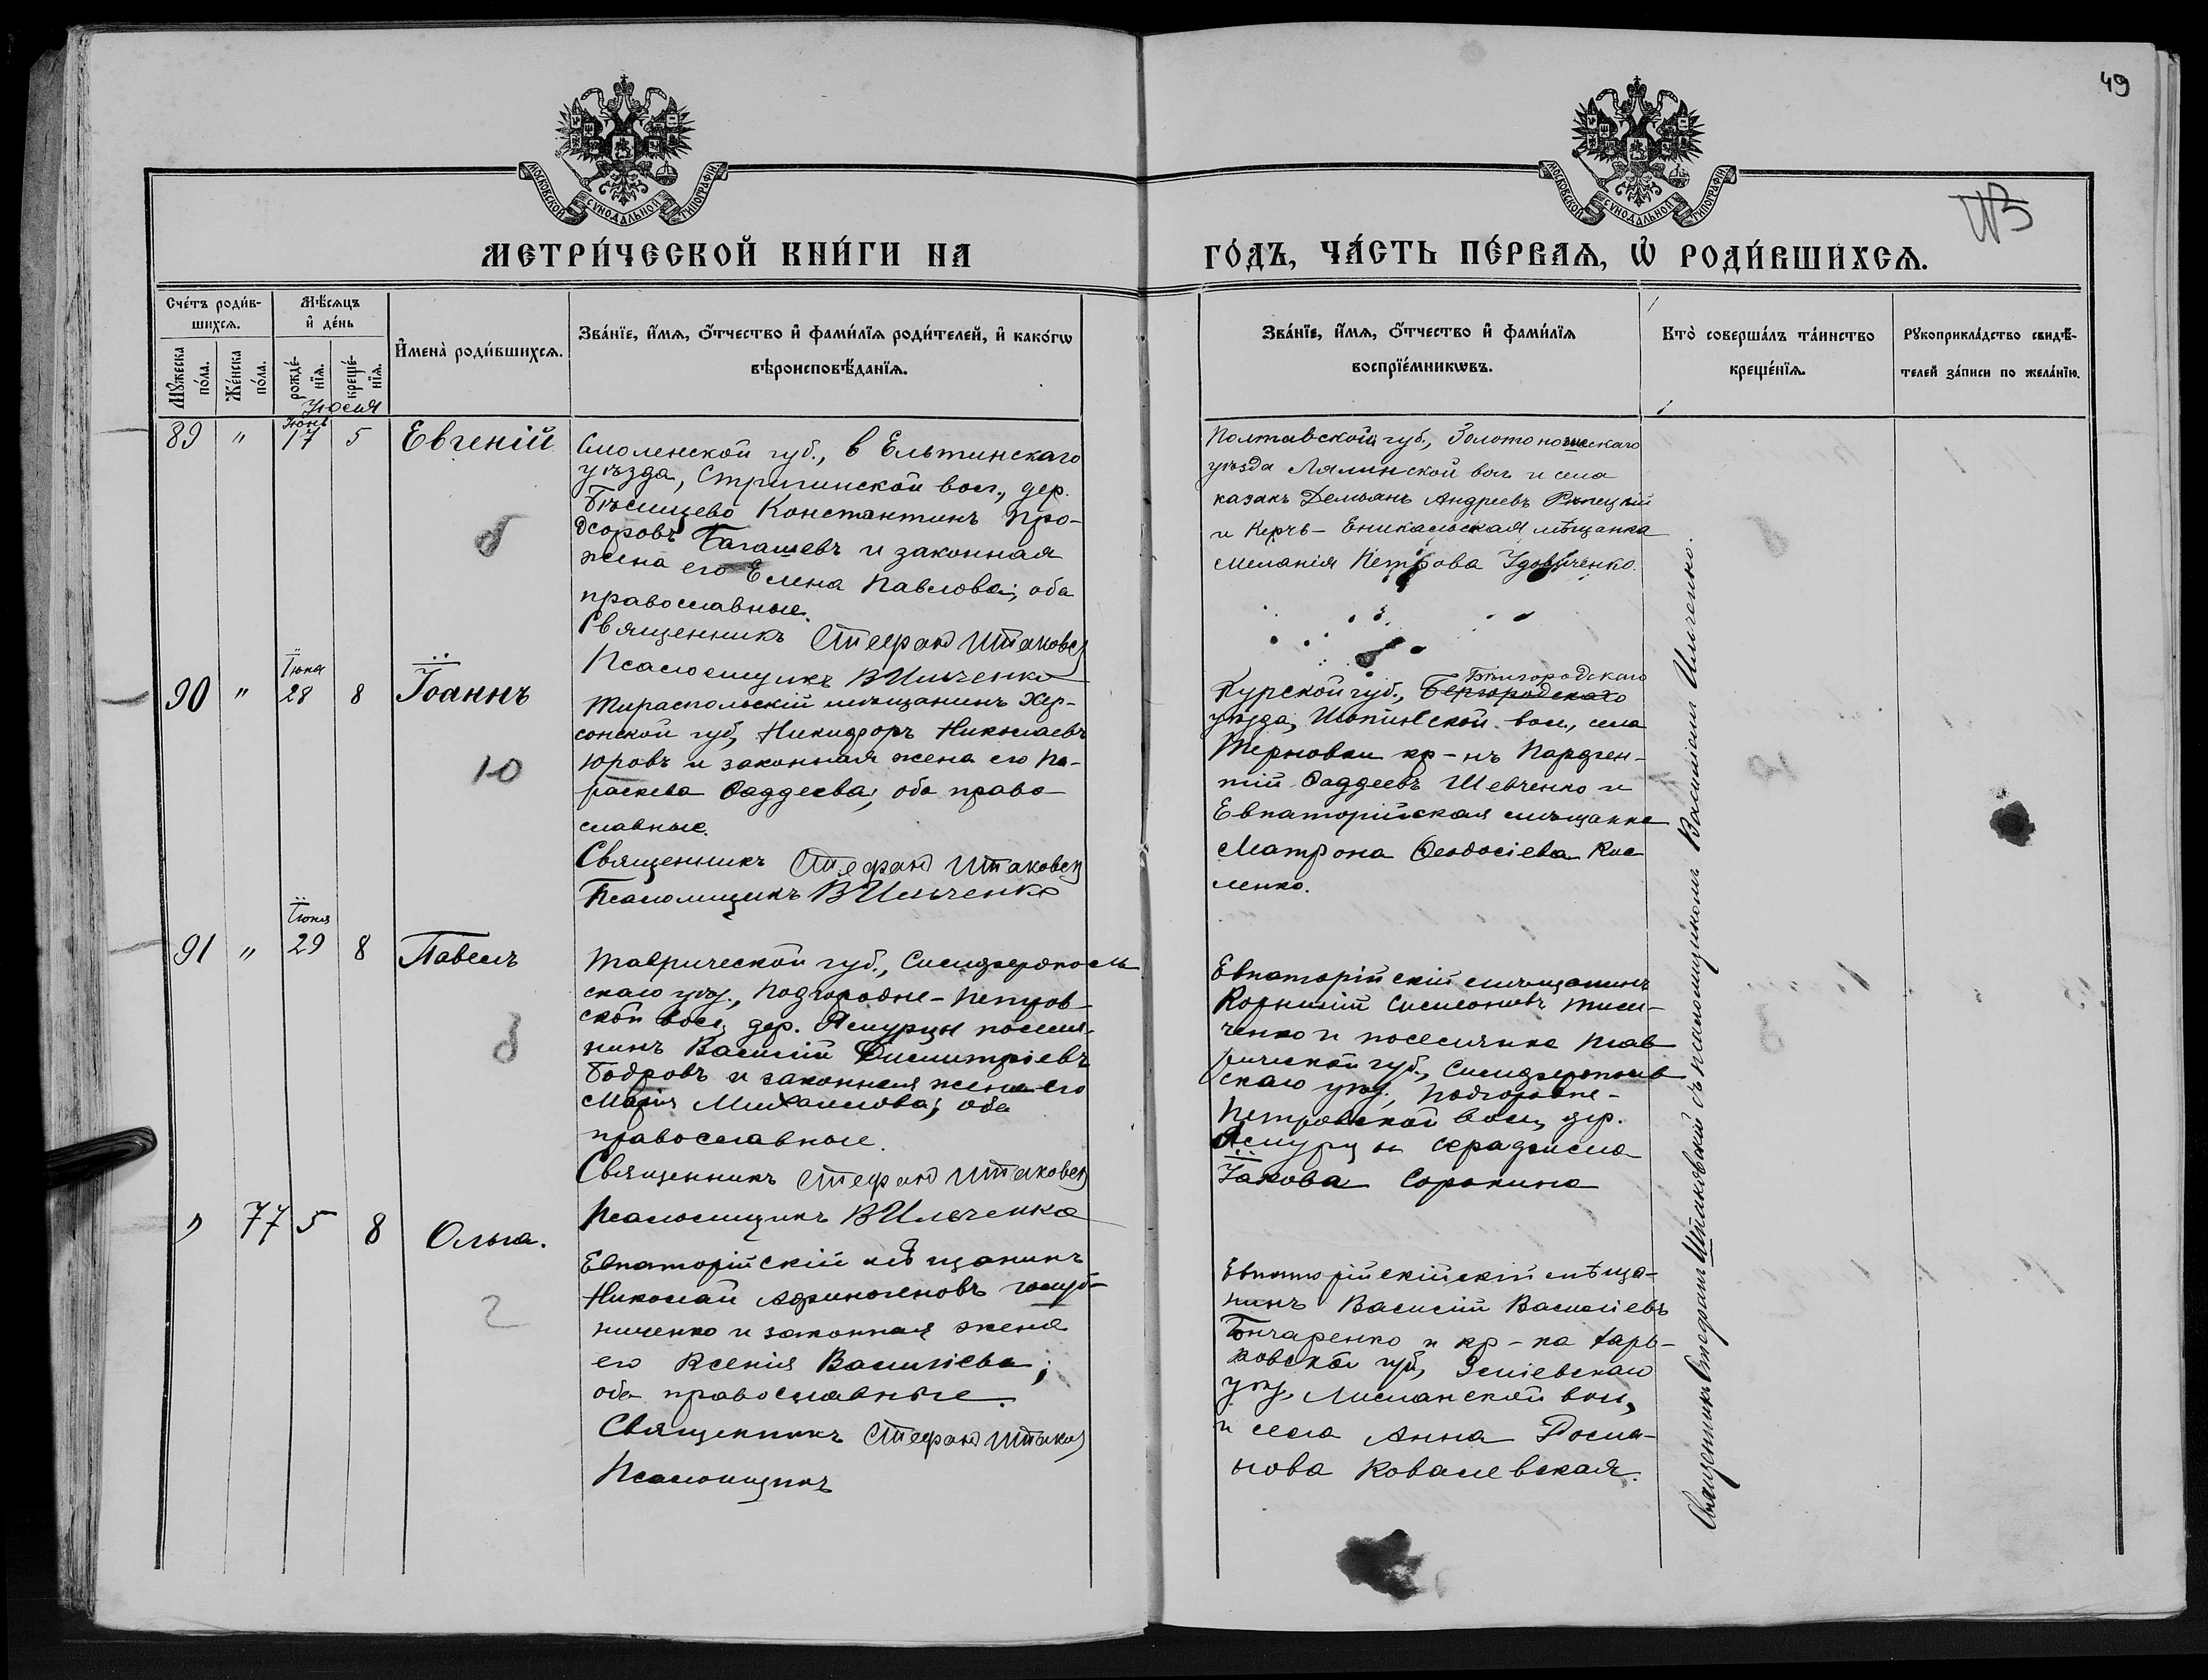 49
МОСКОВСКОЙ СѴНОДАЛЬНОЙ ТИПОГРАФІИ
МОСКОВСКОЙ СѴНОДАЛЬНОЙ ТИПОГРАФІИ
МЕТРИ́ЧЕСКОЙ КНИ́ГИ НА
ГО́ДЪ, ЧА́СТЬ ПЕ́РВАѦ, Ѡ҆ РОДИ́ВШИХСѦ.
Сче́тъ роди́в-
шихсѧ.
Мѣ́сѧцъ
и҆ де́нь
Мꙋ́жеска
по́ла.
Же́нска
по́ла.
рожде́-
нїѧ.
креще́-
нїѧ.
И҆мена̀ роди́вшихсѧ.
Зва́нїе, и҆́мѧ, ѻ҆́тчество и҆ фами́лїѧ роди́телей, и҆ како́гѡ
вѣроисповѣ́данїѧ.
Зва́нїе, и҆́мѧ, ѻ҆́тчество и҆ фами́лїѧ
воспрїе́мникѡвъ.
Кто̀ соверша́лъ та́инство
креще́нїѧ.
Рꙋкоприкла́дство свидѣ́-
телей за́писи по жела́нїю.
Іюля
89 " Іюня 17 5 Евгеній
Смоленской губ., в Ельтинскаго
уѣзда, Стригинской вол., дер.
Бѣсищево Константинъ Про-
Ѳоровъ Багашевъ и законная
жена его Елена Павлова; оба
православные.
Священникъ Стефанъ Штаковск
Псаломщикъ В Ильченко
Полтавской губ., Золотоношскаго
уѣзда Лялинской вол. и села
казакъ Демьянъ Андреевъ Рѣпецкій
и Керчь-Еникальская мѣщанка
Меланія Петрова Удовиченко.
90 " Іюня 28 8 Іоаннъ
Тираспольскій мѣщанинъ Хер-
сонской губ, Никифоръ Николаевъ
Юровъ и законная жена его Па-
раскева Фаддеева; оба право
славные.
Священникъ Стефанъ Штаковск
Псаломщикъ В Ильченко
Бѣлгородскаго
Курской губ.,
уѣзда, Шопинской вол., села
Терновки кр-нъ Парфен-
тій Фаддеевъ Шевченко и
Евпаторійская мѣщанка
Матрона Ѳеодосіева Кис
ленко.
91 " Іюня 29 8 Павелъ
Таврической губ., Симферополь
скаго уѣз., Подгородне-Петров-
ской вол., дер. поселя-
нинъ Василій Димитріевъ
Бодровъ и законная жена его
Марія Михайлова; оба
православные.
Священникъ Стефанъ Штаковск
Псаломщикъ В Ильченко
Евпаторійскій мѣщанинъ
Корнилій Симеоновъ Тими-
ченко и поселянка Тав
рической губ., Симферополь
скаго уѣз., Подгородне-
Петровской вол., дер.
Серафима
Іакова Сорокина
" 77 5 8 Ольга.
Евпаторійскій мѣщанинъ
Николай Афиногеновъ Голуб-
ниченко и законная жена
его Ксенія Василіева;
оба православные.
Священникъ Стефанъ Штаков
Псаломщикъ
Евпаторійскійскій мѣща-
нинъ Василій Василіевъ
Гончаренко и кр-ка Харь-
ковской губ, Зміевскаго
уѣз. Лиманской вол,
и села Анна Рома-
нова Ковалевская.
Священникъ Стефанъ Штаковскій съ псаломщикомъ Василіемъ Ильченко.
8
10
8
2